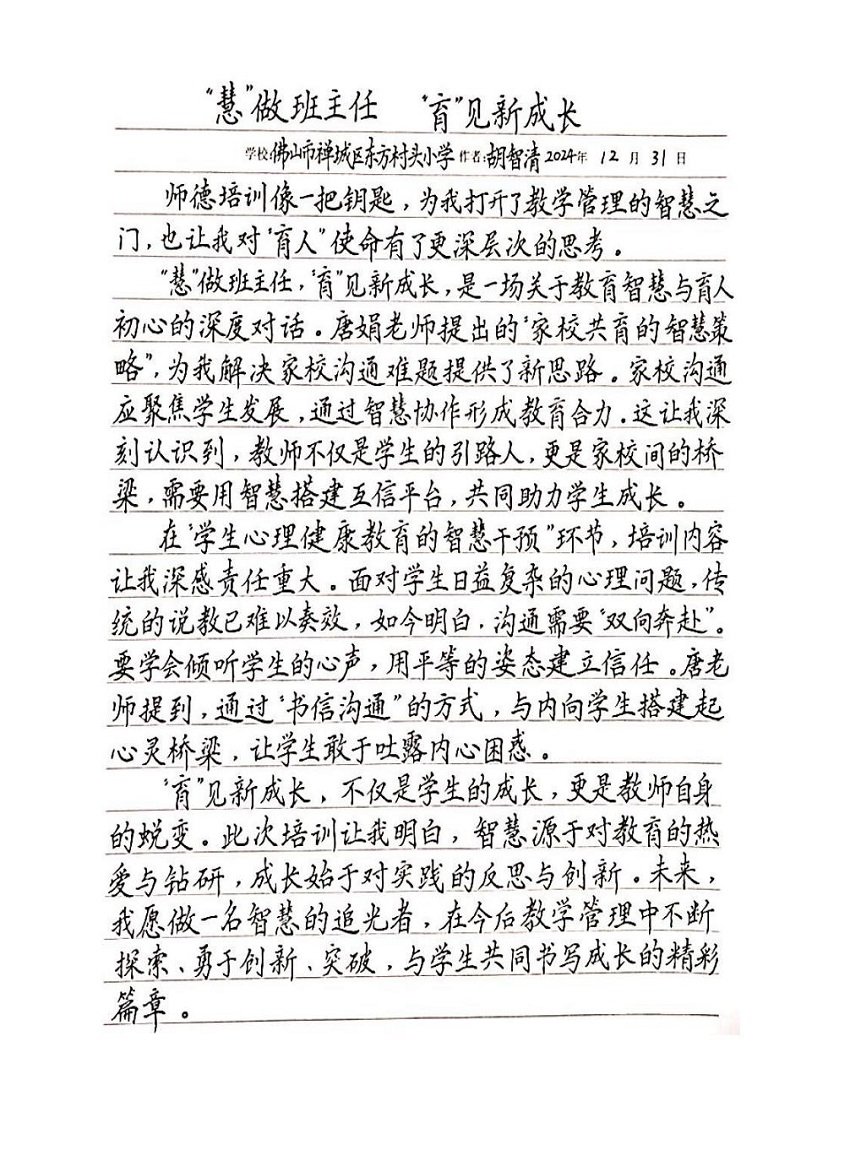 “慧”做班主任 “育”见新成长
学校:佛山市禅城区东方村头小学 作者:胡智清 2024年 12 月 31 日
师德培训像一把钥匙，为我打开了教学管理的智慧之
门，也让我对“育人”使命有了更深层次的思考。
“慧”做班主任，“育”见新成长，是一场关于教育智慧与育人
初心的深度对话。唐娟老师提出的“家校共育的智慧策
略”，为我解决家校沟通难题提供了新思路。家校沟通
应聚焦学生发展，通过智慧协作形成教育合力.这让我深
刻认识到，教师不仅是学生的引路人，更是家校间的桥
梁，需要用智慧搭建互信平台，共同助力学生成长。
在“学生心理健康教育的智慧干预”环节，培训内容
让我深感责任重大。面对学生日益复杂的心理问题，传
统的说教已难以奏效，如今明白，沟通需要“双向奔赴”。
要学会倾听学生的心声，用平等的姿态建立信任。唐老
师提到，通过“书信沟通”的方式，与内向学生搭建起
心灵桥梁，让学生敢于吐露内心困惑。
“育”见新成长，不仅是学生的成长，更是教师自身
的蜕变。此次培训让我明白，智慧源于对教育的热
爱与钻研，成长始于对实践的反思与创新。未来，
我愿做一名智慧的追光者，在今后教学管理中不断
探索、勇于创新、突破，与学生共同书写成长的精彩
篇章。